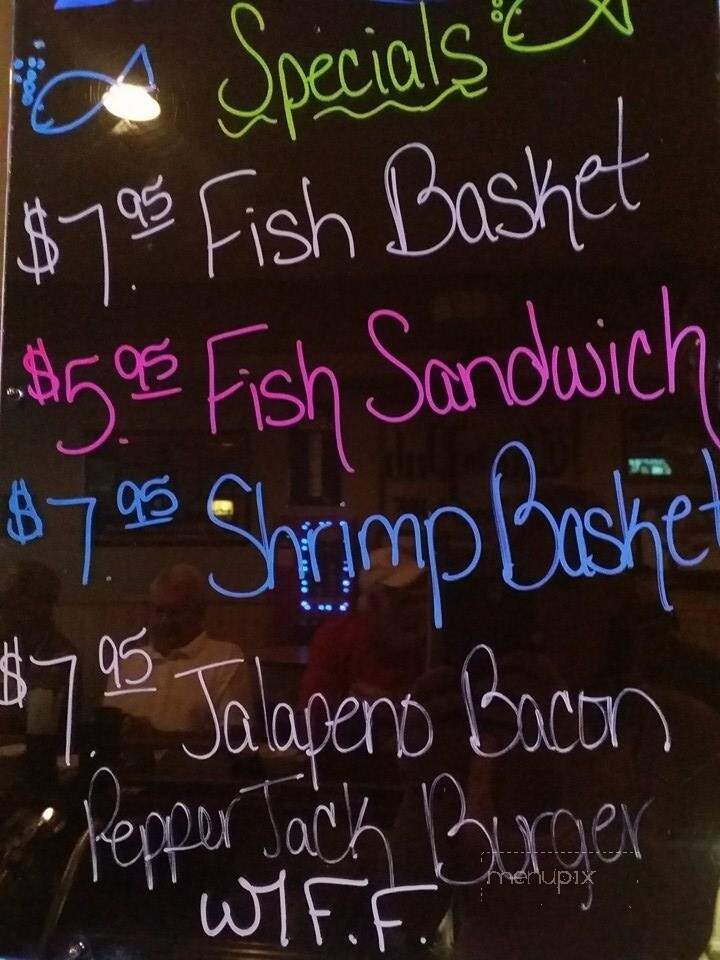 Specials
$7.95 Fish Basket
$5.95 Fish Sandwich
$7.95 Shrimp Basket
$7.95 Jalapeno Bacon
Pepper Jack Burger
menupix
W/ F.F.